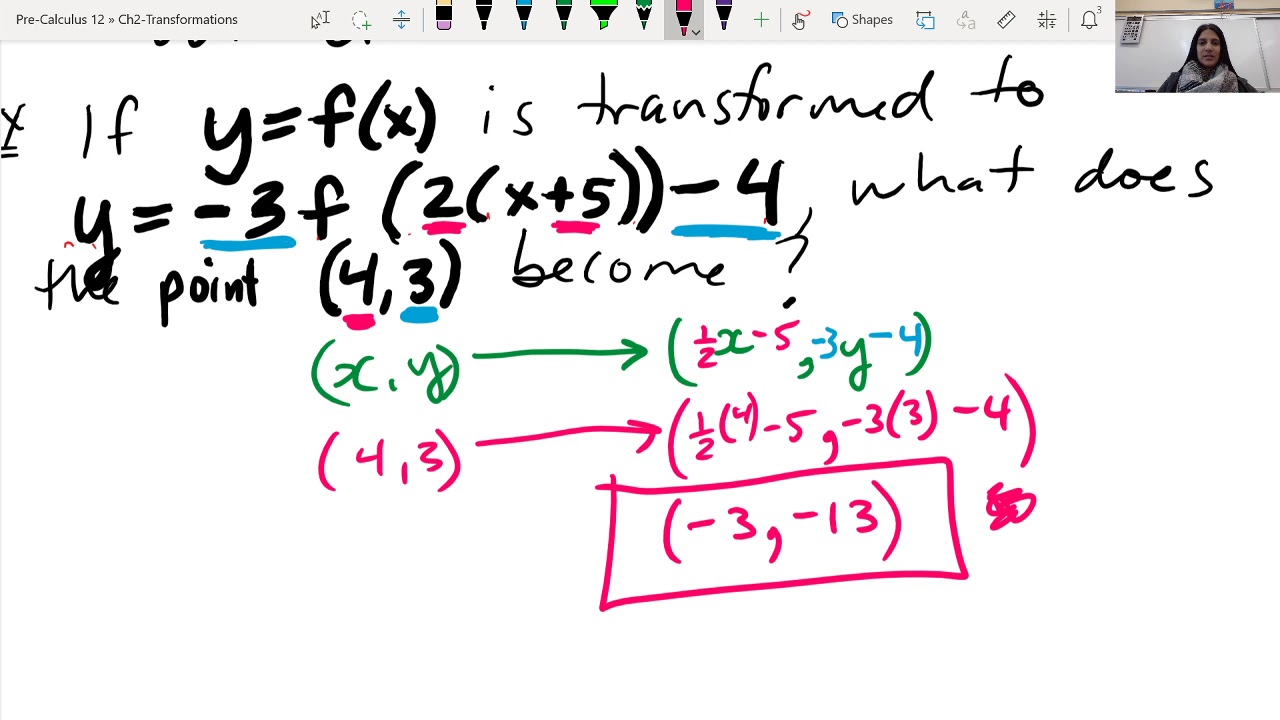 Pre-Calculus 12 » Ch2-Transformations
Shapes
3
If y=f(x) is transformed to
y = -3f (2(x+5)) - 4, what does
the point (4,3) become?
(x, y) → (½x - 5, -3y - 4)
(4, 3) → (½(4) - 5, -3(3) - 4)
(-3, -13)